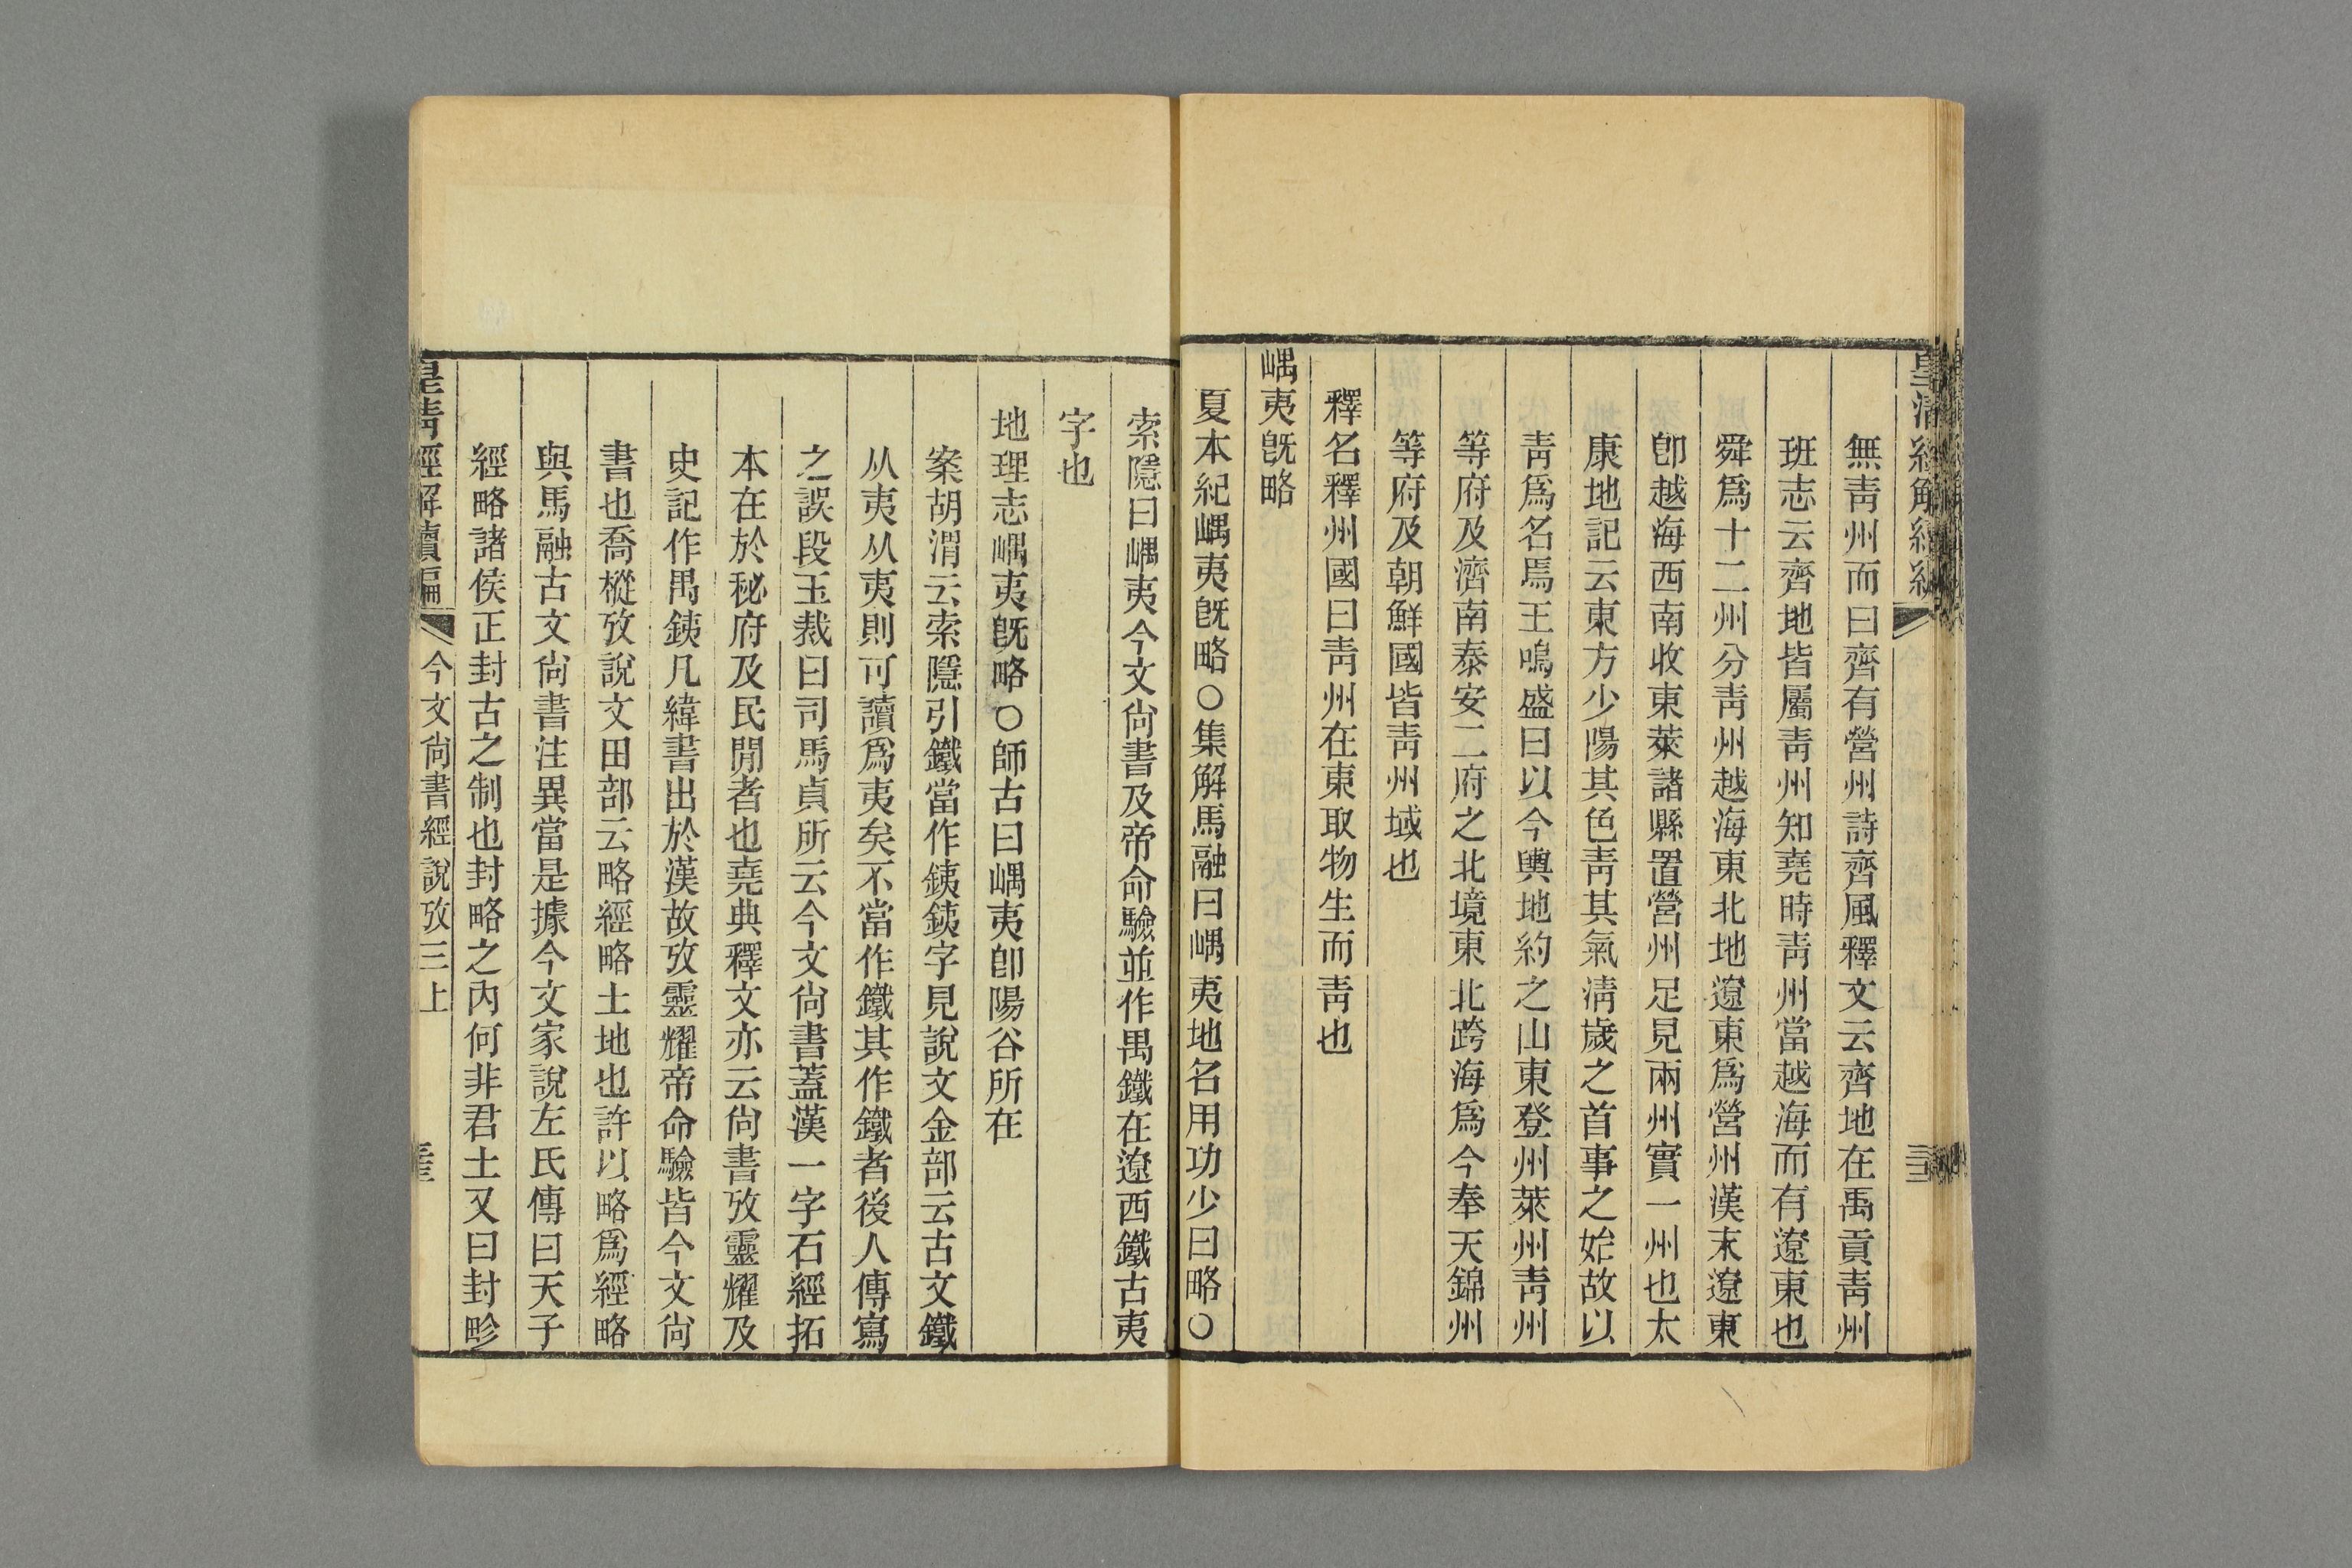 皇清經解續編
無靑州而曰齊有營州詩齊風釋文云齊地在禹貢靑州
班志云齊地皆屬靑州知堯時靑州當越海而有遼東也
舜爲十二州分靑州越海東北地遼東爲營州漢末遼東
卽越海西南收東萊諸縣置營州足見兩州實一州也太
康地記云東方少陽其色靑其氣淸歲之首事之始故以
靑爲名焉王鳴盛曰以今輿地約之山東登州萊州靑州
等府及濟南泰安二府之北境東北跨海爲今奉天錦州
等府及朝鮮國皆靑州域也
釋名釋州國曰靑州在東取物生而靑也
嵎夷旣略
夏本紀嵎夷旣略○集解馬融曰嵎夷地名用功少曰略○
索隱曰嵎夷今文尙書及帝命驗並作禺鐵在遼西鐵古夷
字也
地理志嵎夷旣略○師古曰嵎夷卽陽谷所在
案胡渭云索隱引鐵當作銕銕字見說文金部云古文鐵
从夷从夷則可讀爲夷矣不當作鐵其作鐵者後人傳寫
之誤段玉裁曰司馬貞所云今文尙書蓋漢一字石經拓
本在於秘府及民閒者也堯典釋文亦云尙書攷靈耀及
史記作禺銕凡緯書出於漢故攷靈耀帝命驗皆今文尙
書也喬樅攷說文田部云略經略土地也許以略爲經略
與馬融古文尙書注異當是據今文家說左氏傳曰天子
經略諸侯正封古之制也封略之內何非君土又曰封畛
皇清經解續編
今文尙書經說攷三上